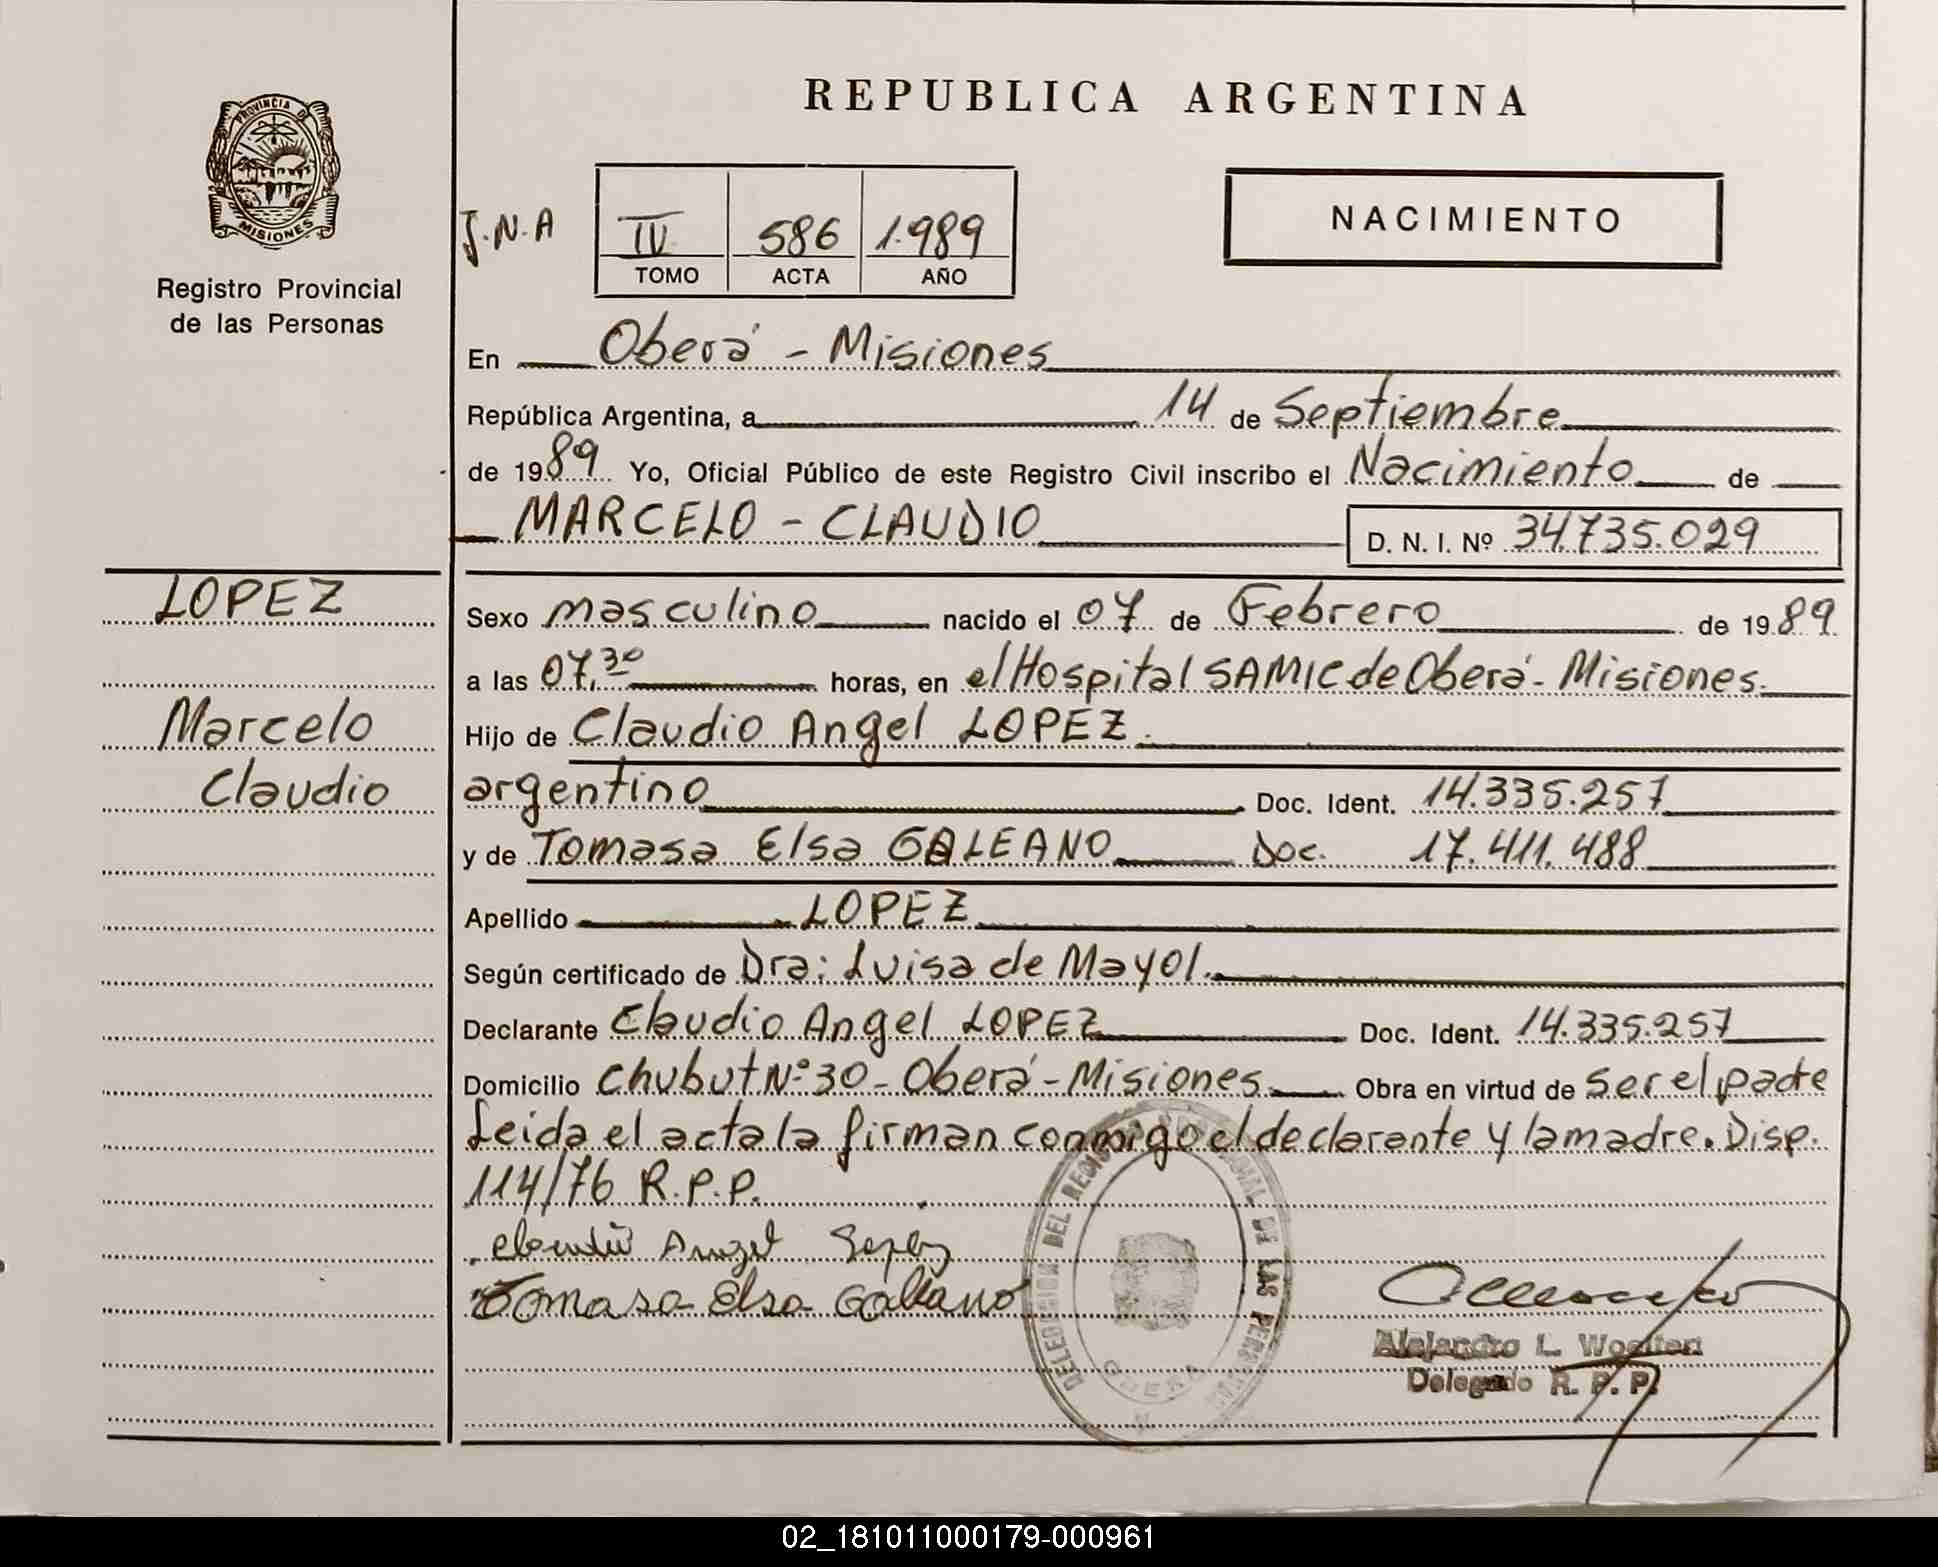 REPUBLICA ARGENTINA
PROVINCIA DE
MISIONES
Registro Provincial
de las Personas
J.N.A
IV 586 1.989
TOMO ACTA AÑO
NACIMIENTO
En Oberá - Misiones
República Argentina, a 14 de Septiembre
de 1989 Yo, Oficial Público de este Registro Civil inscribo el Nacimiento de
MARCELO - CLAUDIO D. N. I. Nº 34.735.029
LOPEZ
Marcelo
Claudio
Sexo masculino nacido el 07 de Febrero de 1989
a las 07,30 horas, en el Hospital SAMIC de Oberá - Misiones.
Hijo de Claudio Angel LOPEZ.
argentino Doc. Ident. 14.335.257
y de Tomasa Elsa GALEANO Doc. 17.411.488
Apellido LOPEZ
Según certificado de Dra: Luisa de Mayol.
Declarante Claudio Angel LOPEZ Doc. Ident. 14.335.257
Domicilio Chubut Nº 30 - Oberá - Misiones. Obra en virtud de ser el padre
Leida el acta la firman conmigo el declarante y la madre. Disp.
114/76 R.P.P.
Claudio Angel Lopez
Tomasa Elsa Galeano
DELEGACION DEL REGISTRO PROVINCIAL DE LAS PERSONAS
OBERA
Alejandro L.
Delegado R. P. P.
02_181011000179-000961